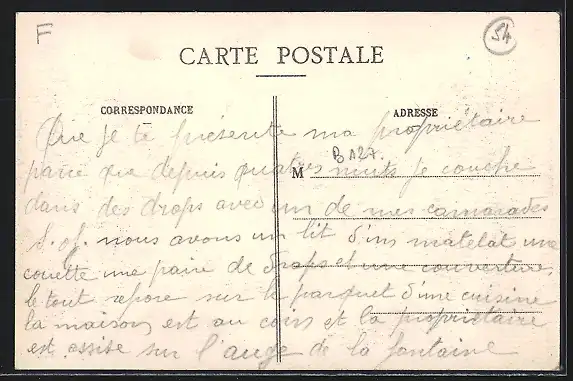 F
54
CARTE POSTALE
CORRESPONDANCE
ADRESSE
Que je te présente ma propriétaire
B A27.
M
parce que depuis quatres nuits je couche
dans des draps avec un de mes camarades
S. of. nous avons un lit d'un matelat une
couette une paire de draps et une couverture,
le tout repose sur le parquet d'une cuisine
la maison est au cours et la propriétaire
est assise sur l'auge de la fontaine